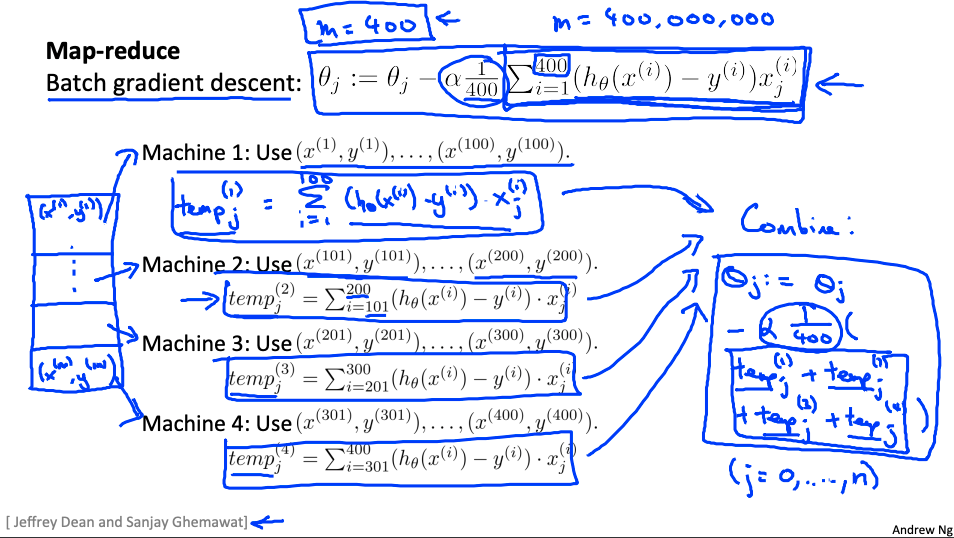 m = 400 ← m = 400,000,000
Map-reduce
Batch gradient descent: θ_j := θ_j − α \frac{1}{400} \sum_{i=1}^{400} (h_θ(x^{(i)}) − y^{(i)}) x_j^{(i)} ←
Machine 1: Use (x^{(1)}, y^{(1)}), . . . , (x^{(100)}, y^{(100)}).
temp_j^{(1)} = \sum_{i=1}^{100} (h_θ(x^{(i)}) − y^{(i)}) · x_j^{(i)}
Machine 2: Use (x^{(101)}, y^{(101)}), . . . , (x^{(200)}, y^{(200)}).
temp_j^{(2)} = \sum_{i=101}^{200} (h_θ(x^{(i)}) − y^{(i)}) · x_j^{(i)}
Machine 3: Use (x^{(201)}, y^{(201)}), . . . , (x^{(300)}, y^{(300)}).
temp_j^{(3)} = \sum_{i=201}^{300} (h_θ(x^{(i)}) − y^{(i)}) · x_j^{(i)}
Machine 4: Use (x^{(301)}, y^{(301)}), . . . , (x^{(400)}, y^{(400)}).
temp_j^{(4)} = \sum_{i=301}^{400} (h_θ(x^{(i)}) − y^{(i)}) · x_j^{(i)}
(x^{(1)}, y^{(1)})
⋮
(x^{(m)}, y^{(m)})
Combine:
θ_j := θ_j
− α \frac{1}{400} (
temp_j^{(1)} + temp_j^{(2)}
+ temp_j^{(3)} + temp_j^{(4)} )
(j = 0, ...., n)
[ Jeffrey Dean and Sanjay Ghemawat] ←
Andrew Ng